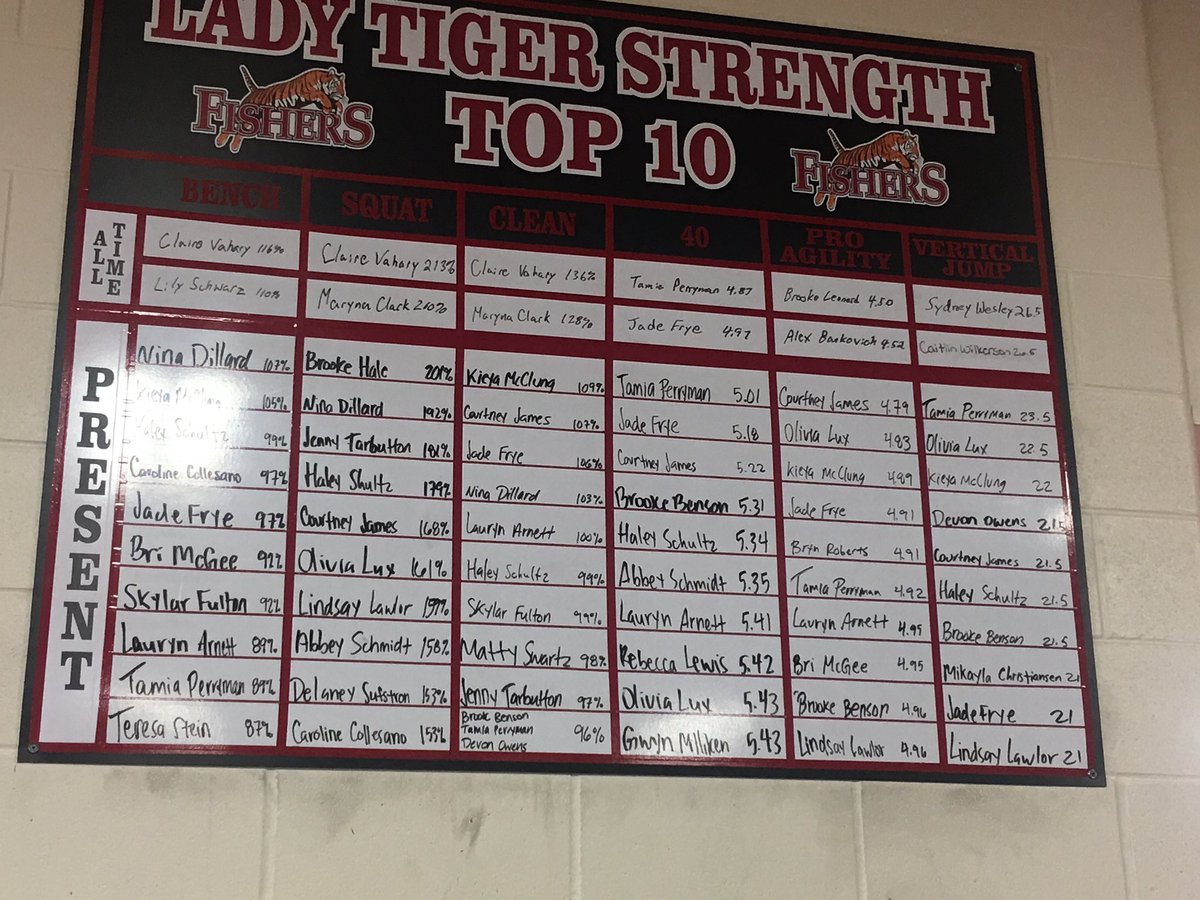 LADY TIGER STRENGTH
TOP 10
FISHERS
FISHERS
BENCH SQUAT CLEAN 40 PRO AGILITY VERTICAL JUMP
ALL TIME
Claire Vahary 116% Claire Vahary 213% Claire Vahary 136% Tamia Perryman 4.87 Brooke Leonard 4.50 Sydney Wesley 26.5
Lily Schwarz 110% Maryna Clark 210% Maryna Clark 128% Jade Frye 4.97 Alex Bankovich 4.52 Caitlin Wilkerson
PRESENT
Nina Dillard 107% Brooke Hale 201% Kieya McClung 109% Tamia Perryman 5.01 Courtney James 4.79 Tamia Perryman 23.5
Kieya McClung 105% Nina Dillard 192% Courtney James 107% Jade Frye 5.18 Olivia Lux 4.83 Olivia Lux 22.5
Haley Schultz 99% Jenny Tarbutton 181% Jade Frye 106% Courtney James 5.22 Kieya McClung 4.89 Kieya McClung 22
Caroline Collesano 97% Haley Shultz 179% Nina Dillard 103% Brooke Benson 5.31 Jade Frye 4.91 Devon Owens 21.5
Jade Frye 97% Courtney James 168% Lauryn Arnett 100% Haley Schultz 5.34 Bryn Roberts 4.91 Courtney James 21.5
Bri McGee 92% Olivia Lux 161% Haley Schultz 99% Abbey Schmidt 5.35 Tamia Perryman 4.92 Haley Schultz 21.5
Skylar Fulton 92% Lindsay Lawlor 159% Skylar Fulton 99% Lauryn Arnett 5.41 Lauryn Arnett 4.95 Brooke Benson 21.5
Lauryn Arnett 89% Abbey Schmidt 158% Matty Swartz 98% Rebecca Lewis 5.42 Bri McGee 4.95 Mikayla Christiansen 21
Tamia Perryman 89% Delaney Sufstrom 153% Jenny Tarbutton 97% Olivia Lux 5.43 Brooke Benson 4.96 Jade Frye 21
Teresa Stein 87% Caroline Collesano 153% Brook Benson Tamia Perryman Devon Owens 96% Gwyn Milliken 5.43 Lindsay Lawlor 4.96 Lindsay Lawlor 21